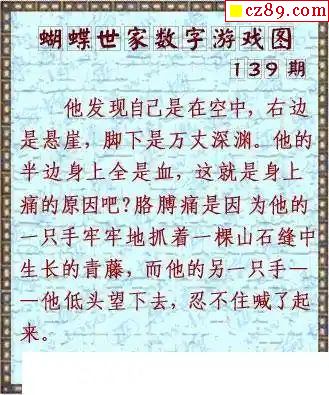 cz89.com
蝴蝶世家数字游戏图
139期
他发现自己是在空中，右边
是悬崖，脚下是万丈深渊。他的
半边身上全是血，这就是身上
痛的原因吧?胳膊痛是因为他的
一只手牢牢地抓着一棵山石缝中
生长的青藤，而他的另一只手—
—他低头望下去，忍不住喊了起
来。